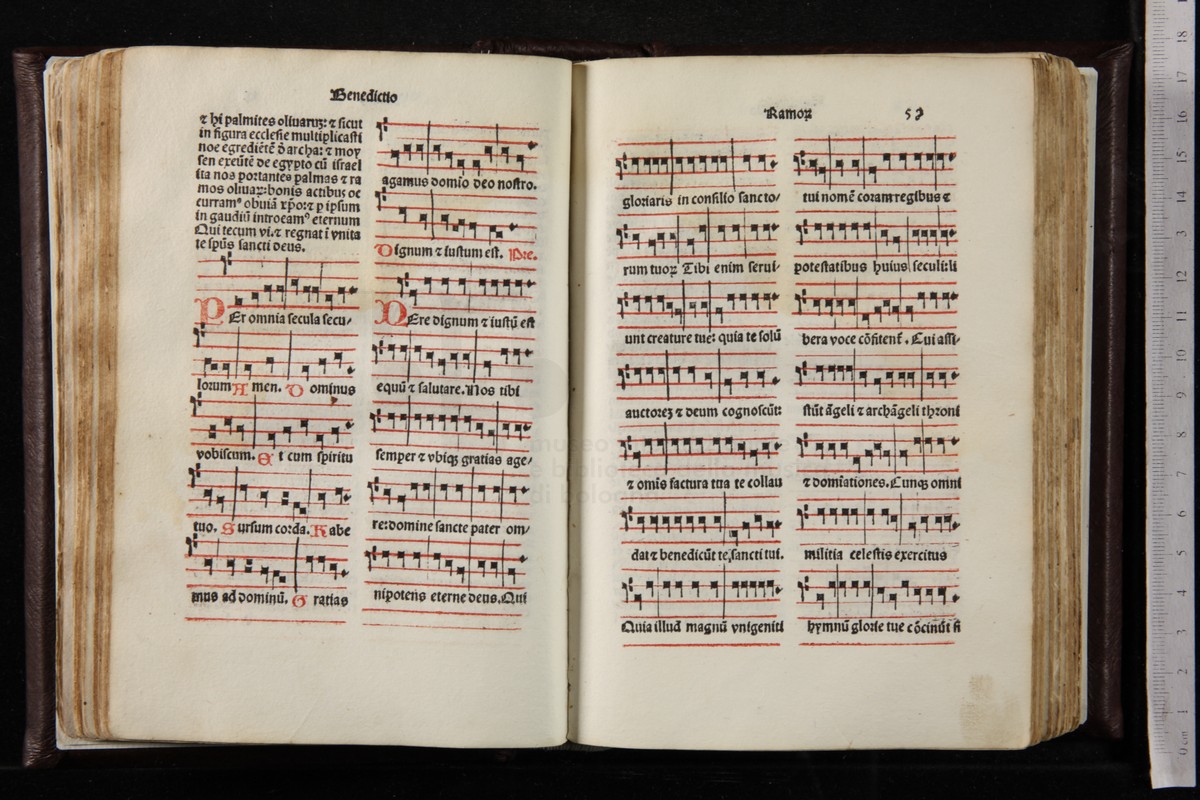 Benedictio
⁊ hi palmites oliuaruꝫ: ⁊ sicut
in figura ecclesie multiplicasti
noe egrediētē ð archa: ⁊ moy
sen exeūtē de egypto cū israel
ita nos portantes palmas ⁊ ra
mos oliuaꝝ: bonis actibus oc
curramꝰ obuiā xp̄o: ⁊ p ipsum
in gaudiū introeamꝰ eternum
Qui tecum vi. ⁊ regnat ī vnita
te spūs sancti deus.
PEr omnia secula secu/
lorum Amen. Dominus
vobiscum. Et cum spiritu
tuo. Sursum corda. Habe
mus ad dominū. Gratias
agamus domio deo nostro.
Dignum ⁊ iustum est. Pre.
VEre dignum ⁊ iustū est
equū ⁊ salutare. Nos tibi
semper ⁊ vbiqꝫ gratias age/
re: domine sancte pater om/
nipotens eterne deus. Qui
Ramoꝝ 53
gloriaris in consilio sancto/
rum tuoꝝ Tibi enim serui/
unt creature tue: quia te solū
auctoreꝫ ⁊ deum cognoscūt:
⁊ omīs factura tua te collau
dat ⁊ benedicūt te, sancti tui.
Quia illud magnū vnigeniti
tui nomē coram regibus ⁊
potestatibus huius seculi: li
bera voce cōfitent̄. Cui assi/
stūt āgeli ⁊ archāgeli throni
⁊ domīationes. Cunqꝫ omni
militia celestis exercitus
hymnū glorie tue cōcinūt si
museo
e biblioteca della musica
di bologna